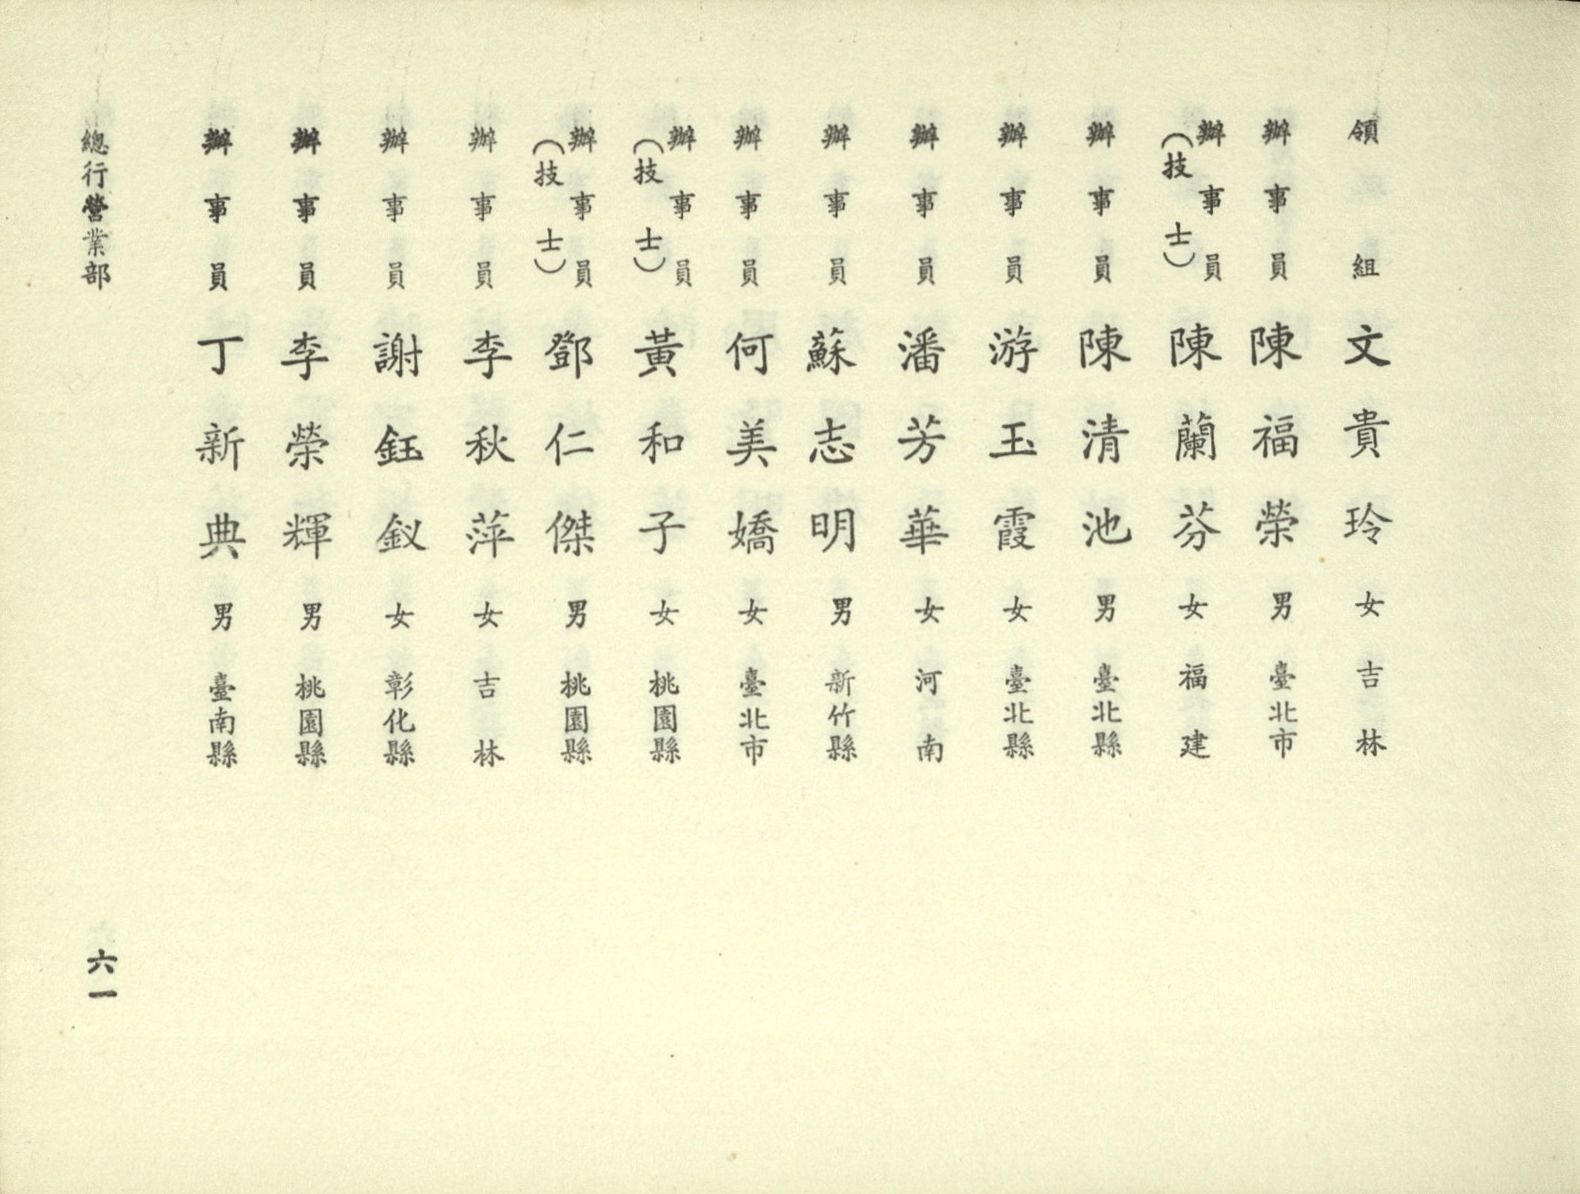 領組 文貴玲 女 吉林
辦事員 陳福榮 男 臺北市
辦事員(技士) 陳蘭芬 女 福建
辦事員 陳清池 男 臺北縣
辦事員 游玉霞 女 臺北縣
辦事員 潘芳華 女 河南
辦事員 蘇志明 男 新竹縣
辦事員 何美嬌 女 臺北市
辦事員(技士) 黃和子 女 桃園縣
辦事員(技士) 鄧仁傑 男 桃園縣
辦事員 李秋萍 女 吉林
辦事員 謝鈺釵 女 彰化縣
辦事員 李榮輝 男 桃園縣
辦事員 丁新典 男 臺南縣
總行營業部
六一